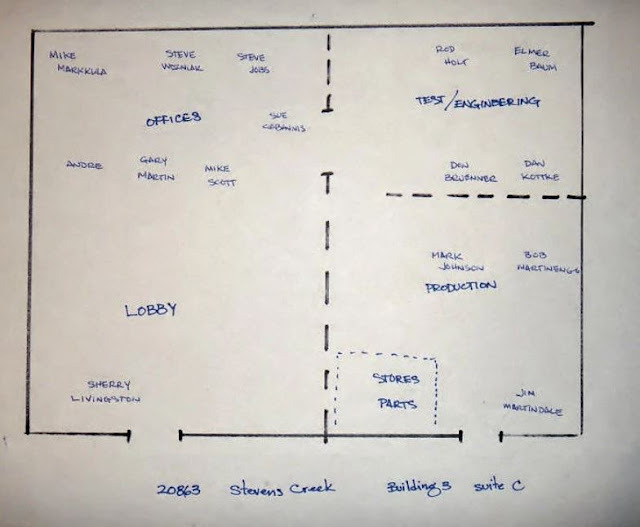 MIKE
MARKKULA
STEVE
WOZNIAK
STEVE
JOBS
SUE
CABANNIS
OFFICES
ANDRE
GARY
MARTIN
MIKE
SCOTT
ROD
HOLT
ELMER
BAUM
TEST/ENGINEERING
DON
BRUENNER
DAN
KOTTKE
MARK
JOHNSON
BOB
MARTINENGO
PRODUCTION
LOBBY
SHERRY
LIVINGSTON
STORES
PARTS
JIM
MARTINDALE
20863 Stevens Creek Building 3 suite C